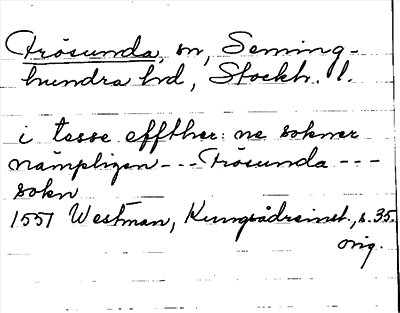 Frösunda, sn, Seming-
hundra hd, Stockh. l.
i tesse effther: ne sokner
nämpligen - - - Frösunda - - -
sokn
1551 Westman, Kungsådreinst., s. 35.
orig.